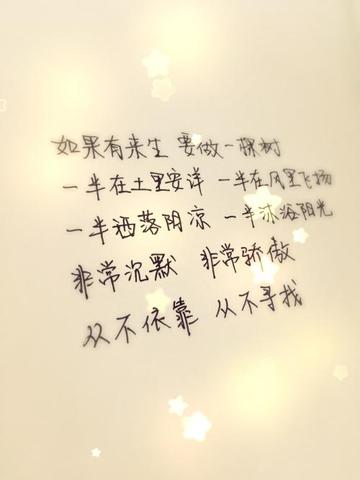 如果有来生 要做一棵树
一半在土里安详 一半在风里飞扬
一半洒落阴凉 一半沐浴阳光
非常沉默 非常骄傲
从不依靠 从不寻找